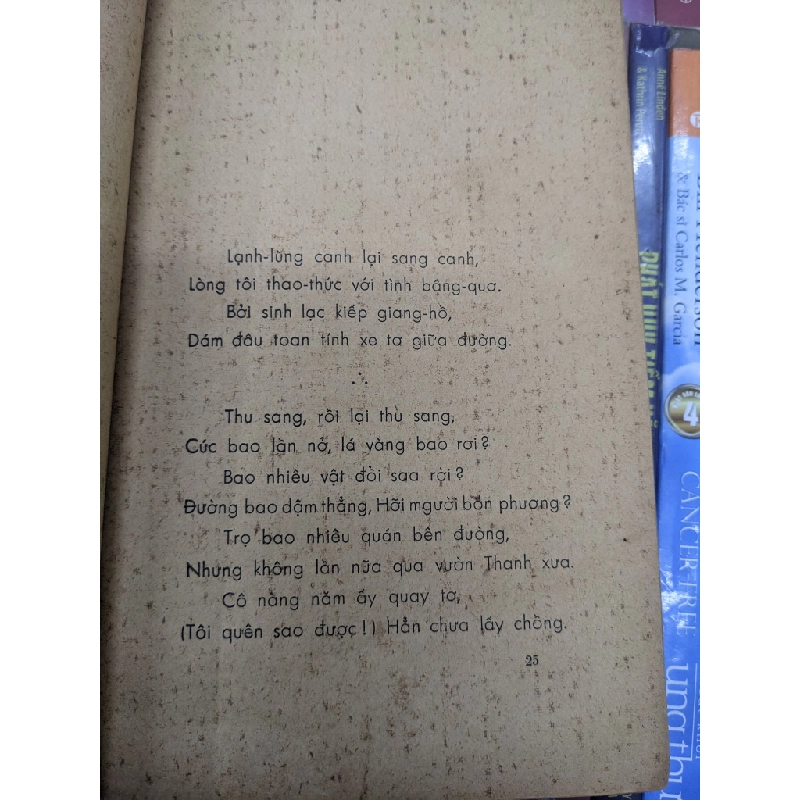 Lạnh-lùng canh lại sang canh,
Lòng tôi thao-thức với tình bâng-quơ.
Bởi sinh lạc kiếp giang-hồ,
Dám đâu toan tính xe tơ giữa đường.
Thu sang, rồi lại thu sang,
Cúc bao lần nở, lá vàng bao rơi?
Bao nhiêu vật đổi sao rời?
Đường bao dậm thẳng, Hỡi người bốn phương?
Trọ bao nhiêu quán bên đường,
Nhưng không lần nữa qua vườn Thanh xưa.
Cô nàng năm ấy quay tơ,
(Tôi quên sao được!) Hẳn chưa lấy chồng.
25
Anne Linden
& Kathrin Perutz
PHÁT HUY TIỀM
Bill Henderson
& Bác sĩ Carlos M. Garcia
4
CANCER-FREE
ung thư